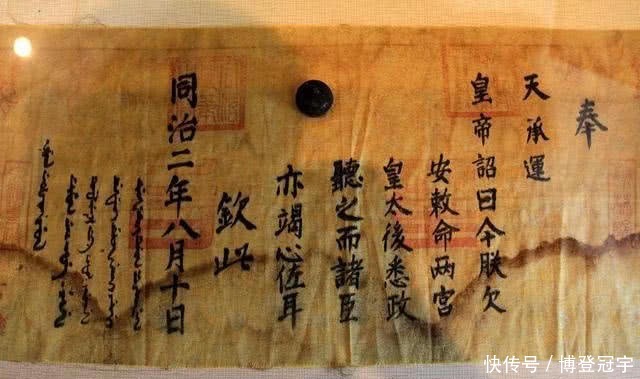 奉
天承運
皇帝詔曰今朕欠
安敕命两宫
皇太後悉政
聽之而諸臣
亦竭心佐耳
欽此
同治二年八月十日
快传号／博登冠宇